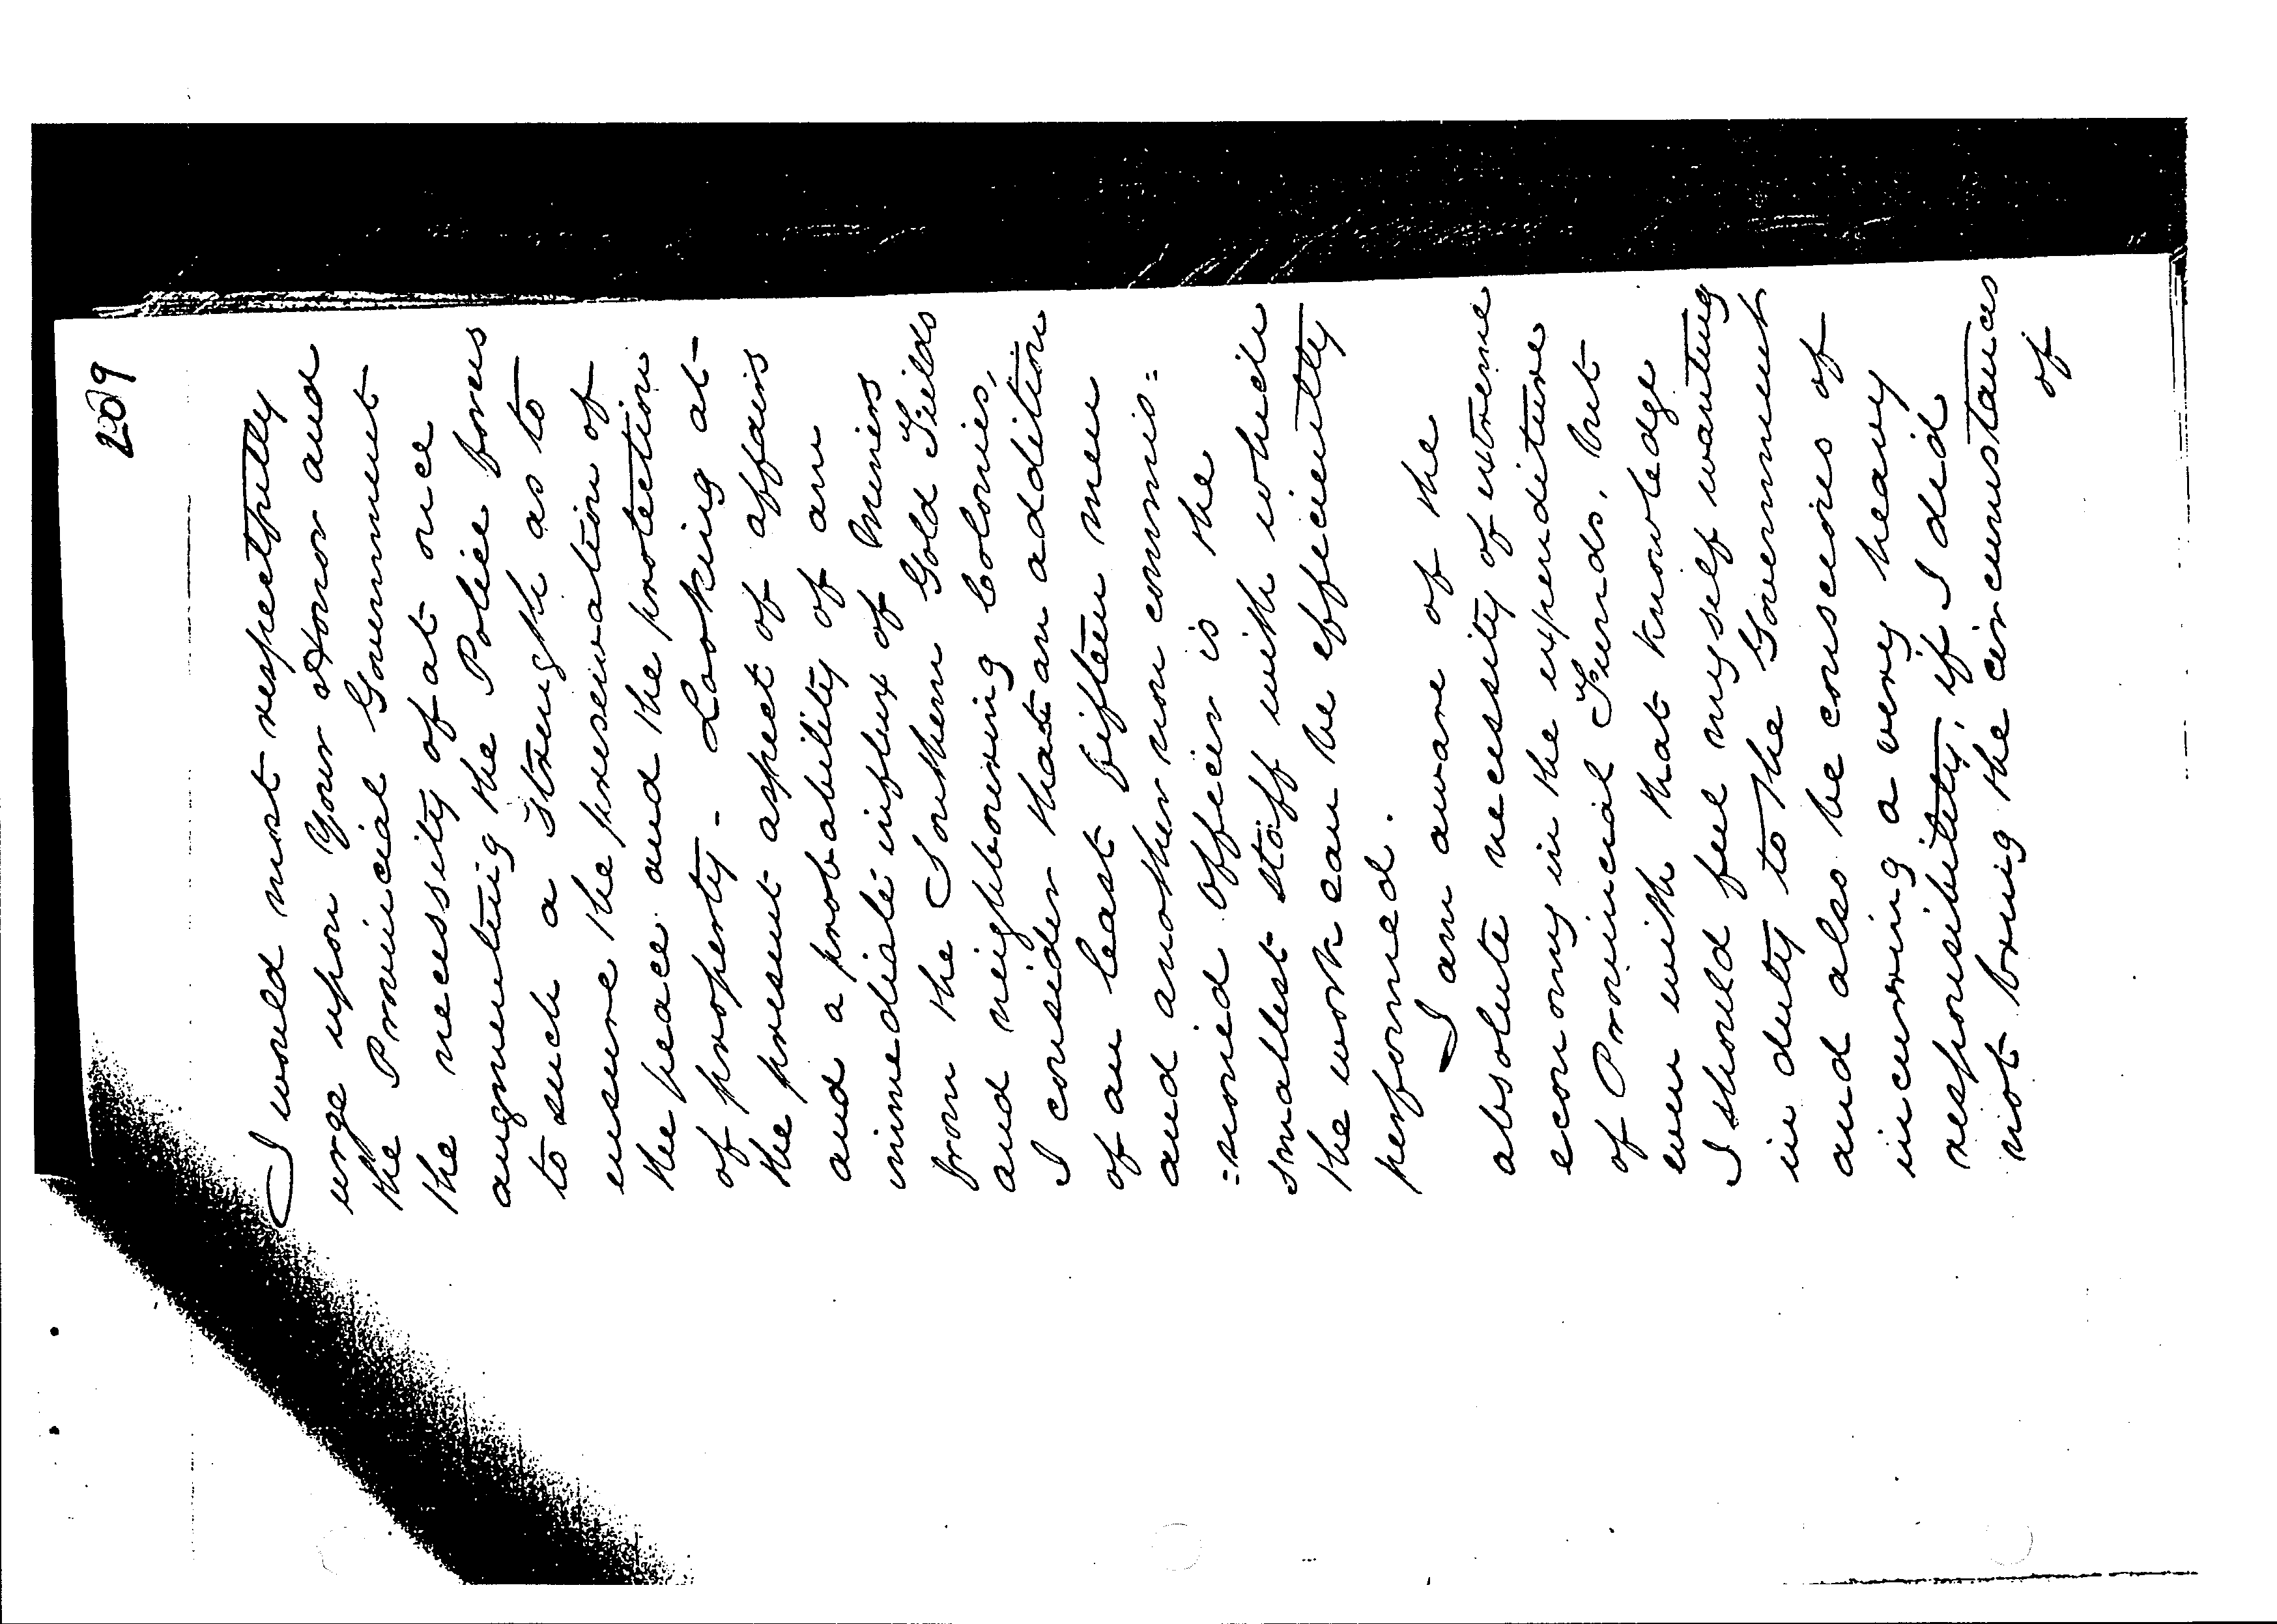 209
I would most respectfully
urge upon Your Honor and
the Provincial Government
the necessity of at once
augmenting the Police force
to such a strength as to
ensure the preservation of
the peace and the protection
of property - Looking at
the present aspect of affairs
and a probability of an
immediate influx of Miners
from the Southern Gold Fields
and neighbouring Colonies,
I consider that an addition
of an least fifteen men
and another non commis=
=sioned officer is the
smallest staff with which
the work can be efficiently
performed.
I am aware of the
absolute necessity of extreme
economy in the expenditure
of Provincial Funds, but
even with that knowledge
I should feel myself wanting
in duty to the Government
and also be conscious of
incurring a very heavy
responsibility, if I did
not bring the circumstances
of